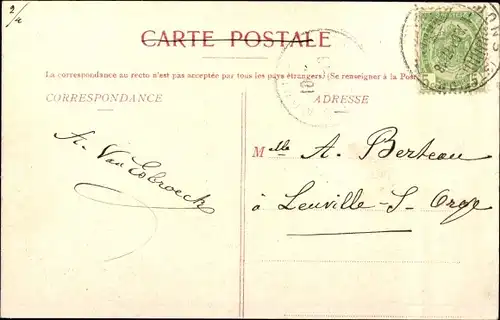 2/4
CARTE POSTALE
La correspondance au recto n'est pas acceptée par tous les pays étrangers. (Se renseigner à la Poste
CORRESPONDANCE
ADRESSE
A. Van Esbroeck
Melle A. Berteau
à Leuville-S-Orge
5 5